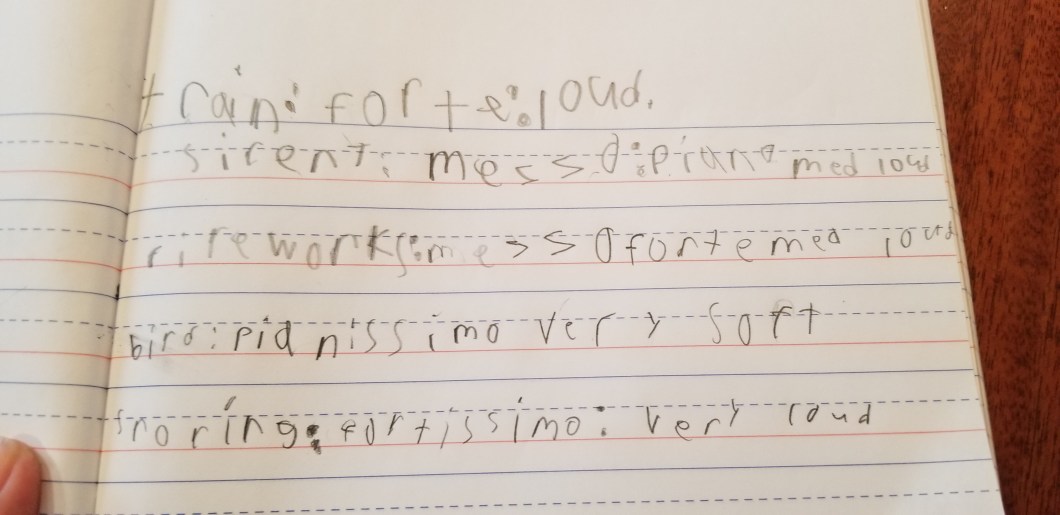 train: forte: loud.
sirent: messo: piano med loud
fireworks: messo forte med loud
bird: pianissimo very soft
snoring: fortissimo: very loud